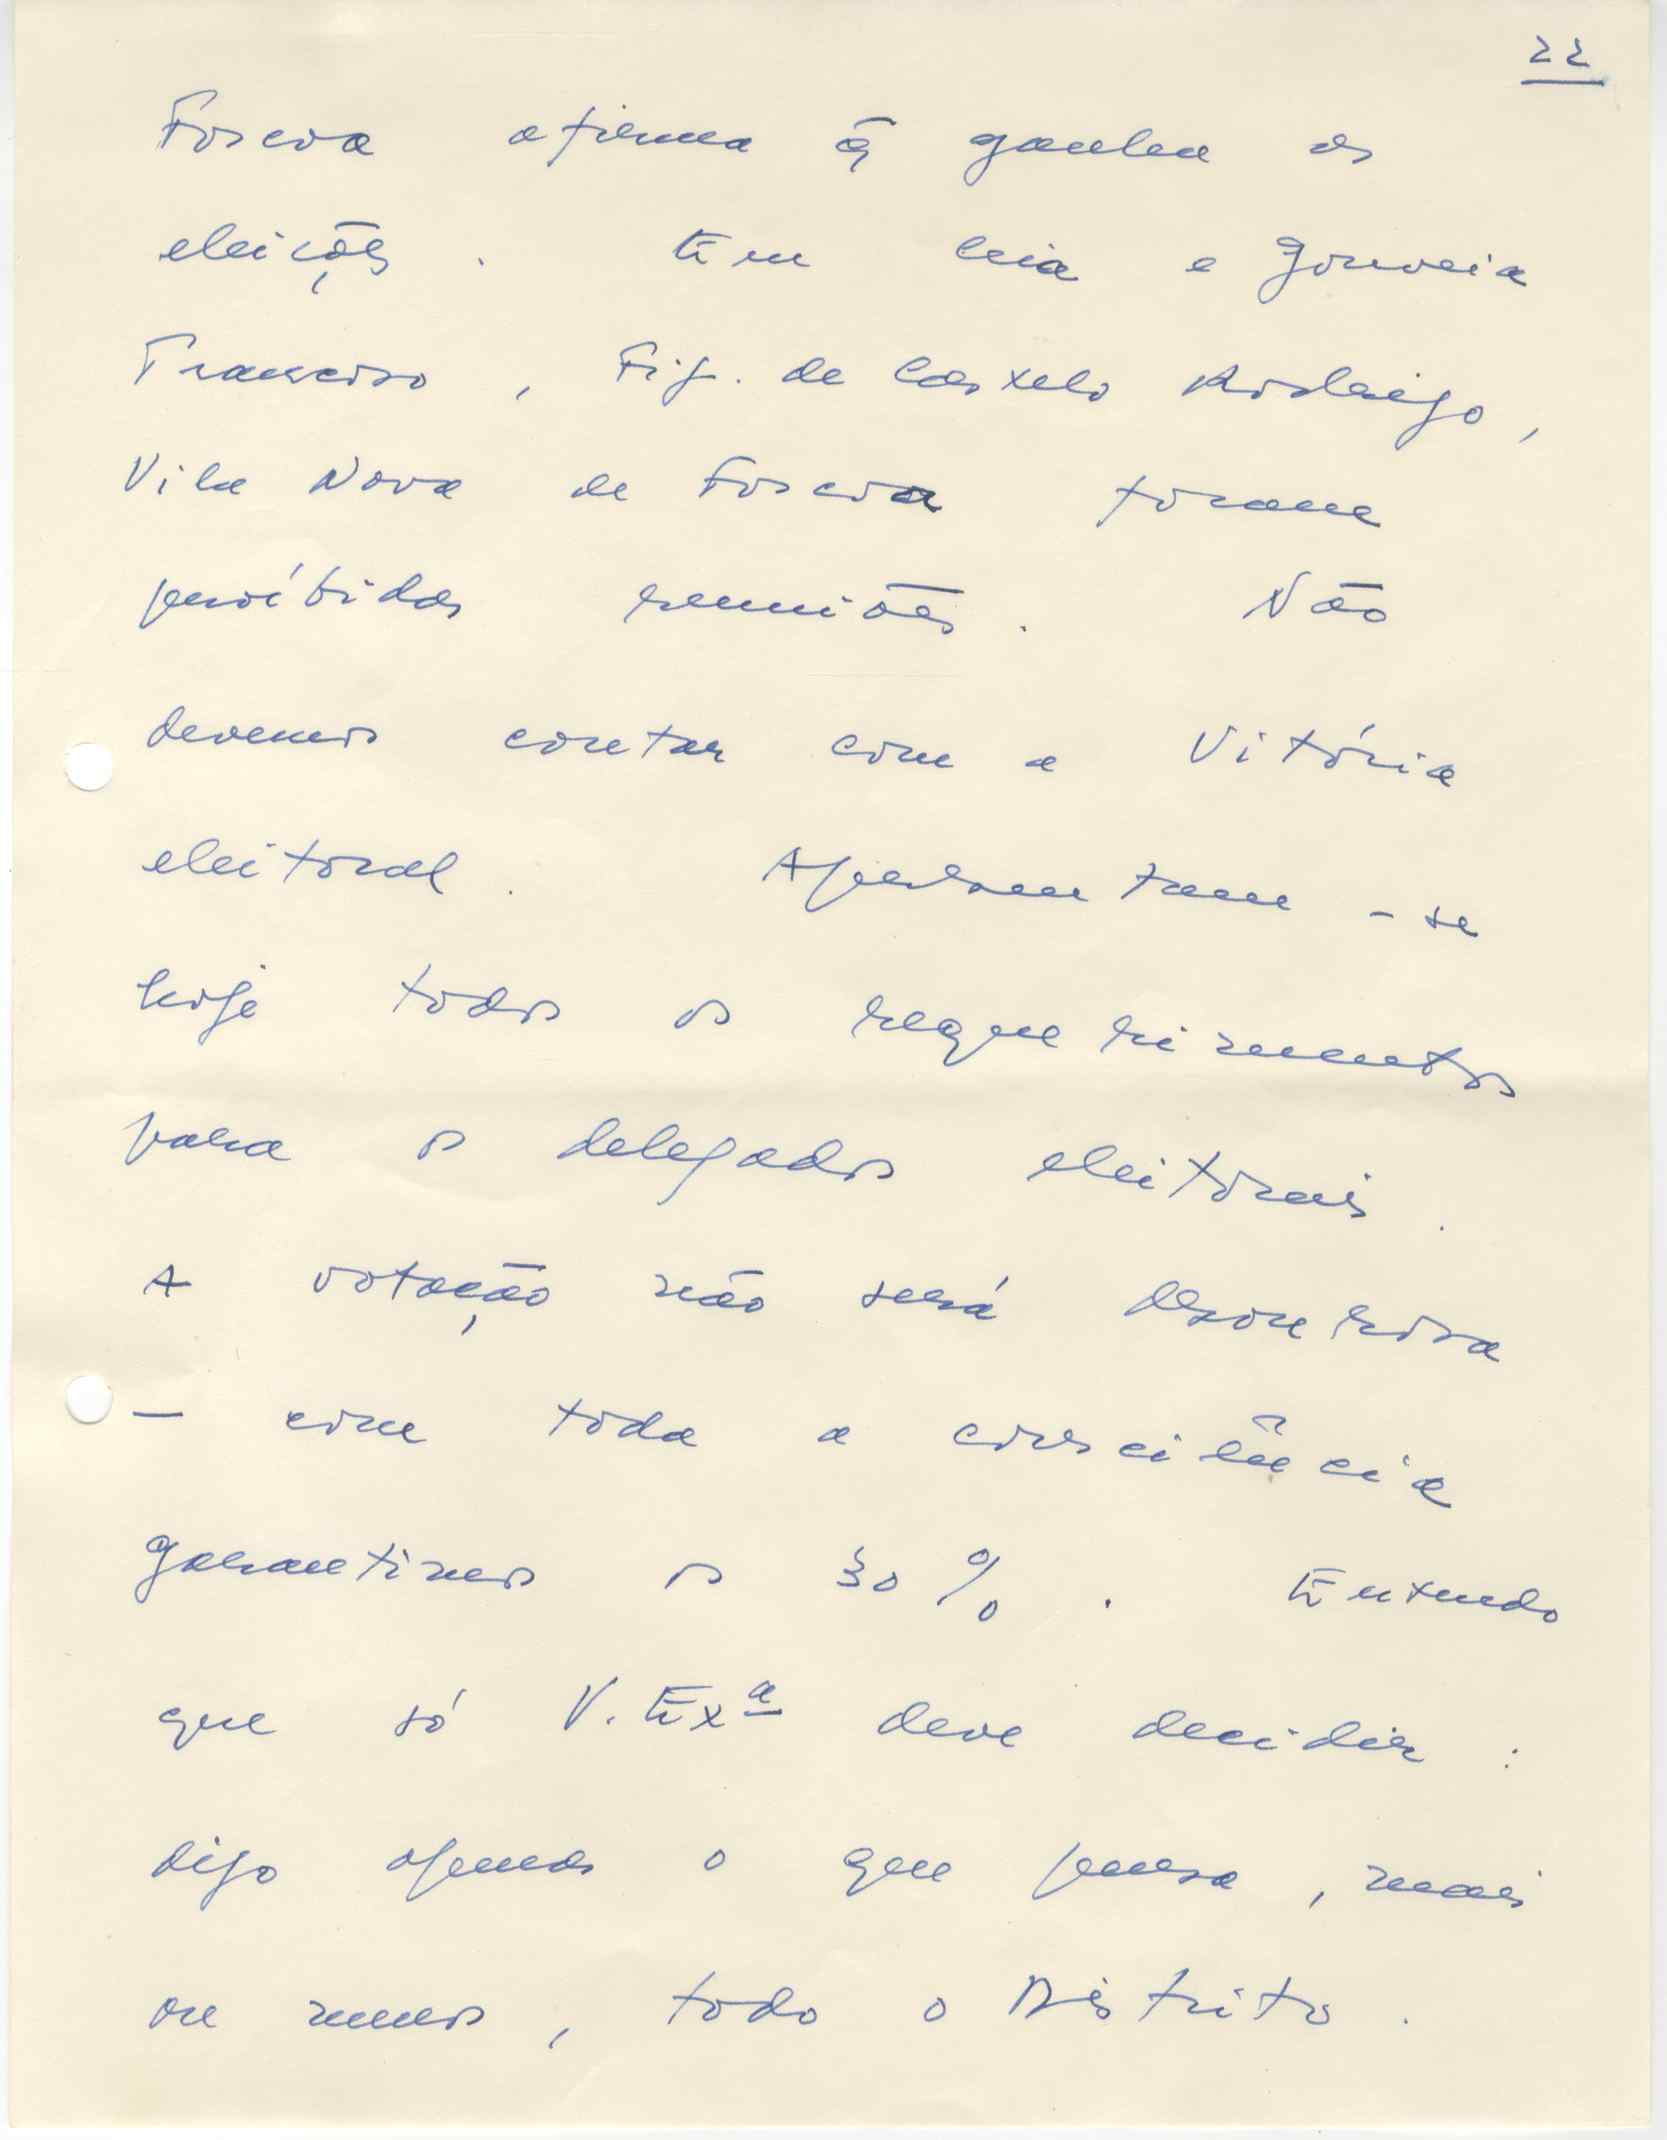 22
Foscoa afirma q̃ ganha as
eleições. Em Ceia e Gouveia
Trancoso, Fig. de Castelo Rodrigo,
Vila Nova de Foscoa foram
proíbidas reuniões. Não
devemos contar com a Vitória
eleitoral. Apresentam-se
hoje todos os requerimentos
para os delegados eleitorais.
A votação não será desonrosa
— com toda a consciência
garantimos os 30%. Entendo
que só V. Exª deve decidir:
digo apenas o que pensa, mais
ou menos, todo o Distrito.